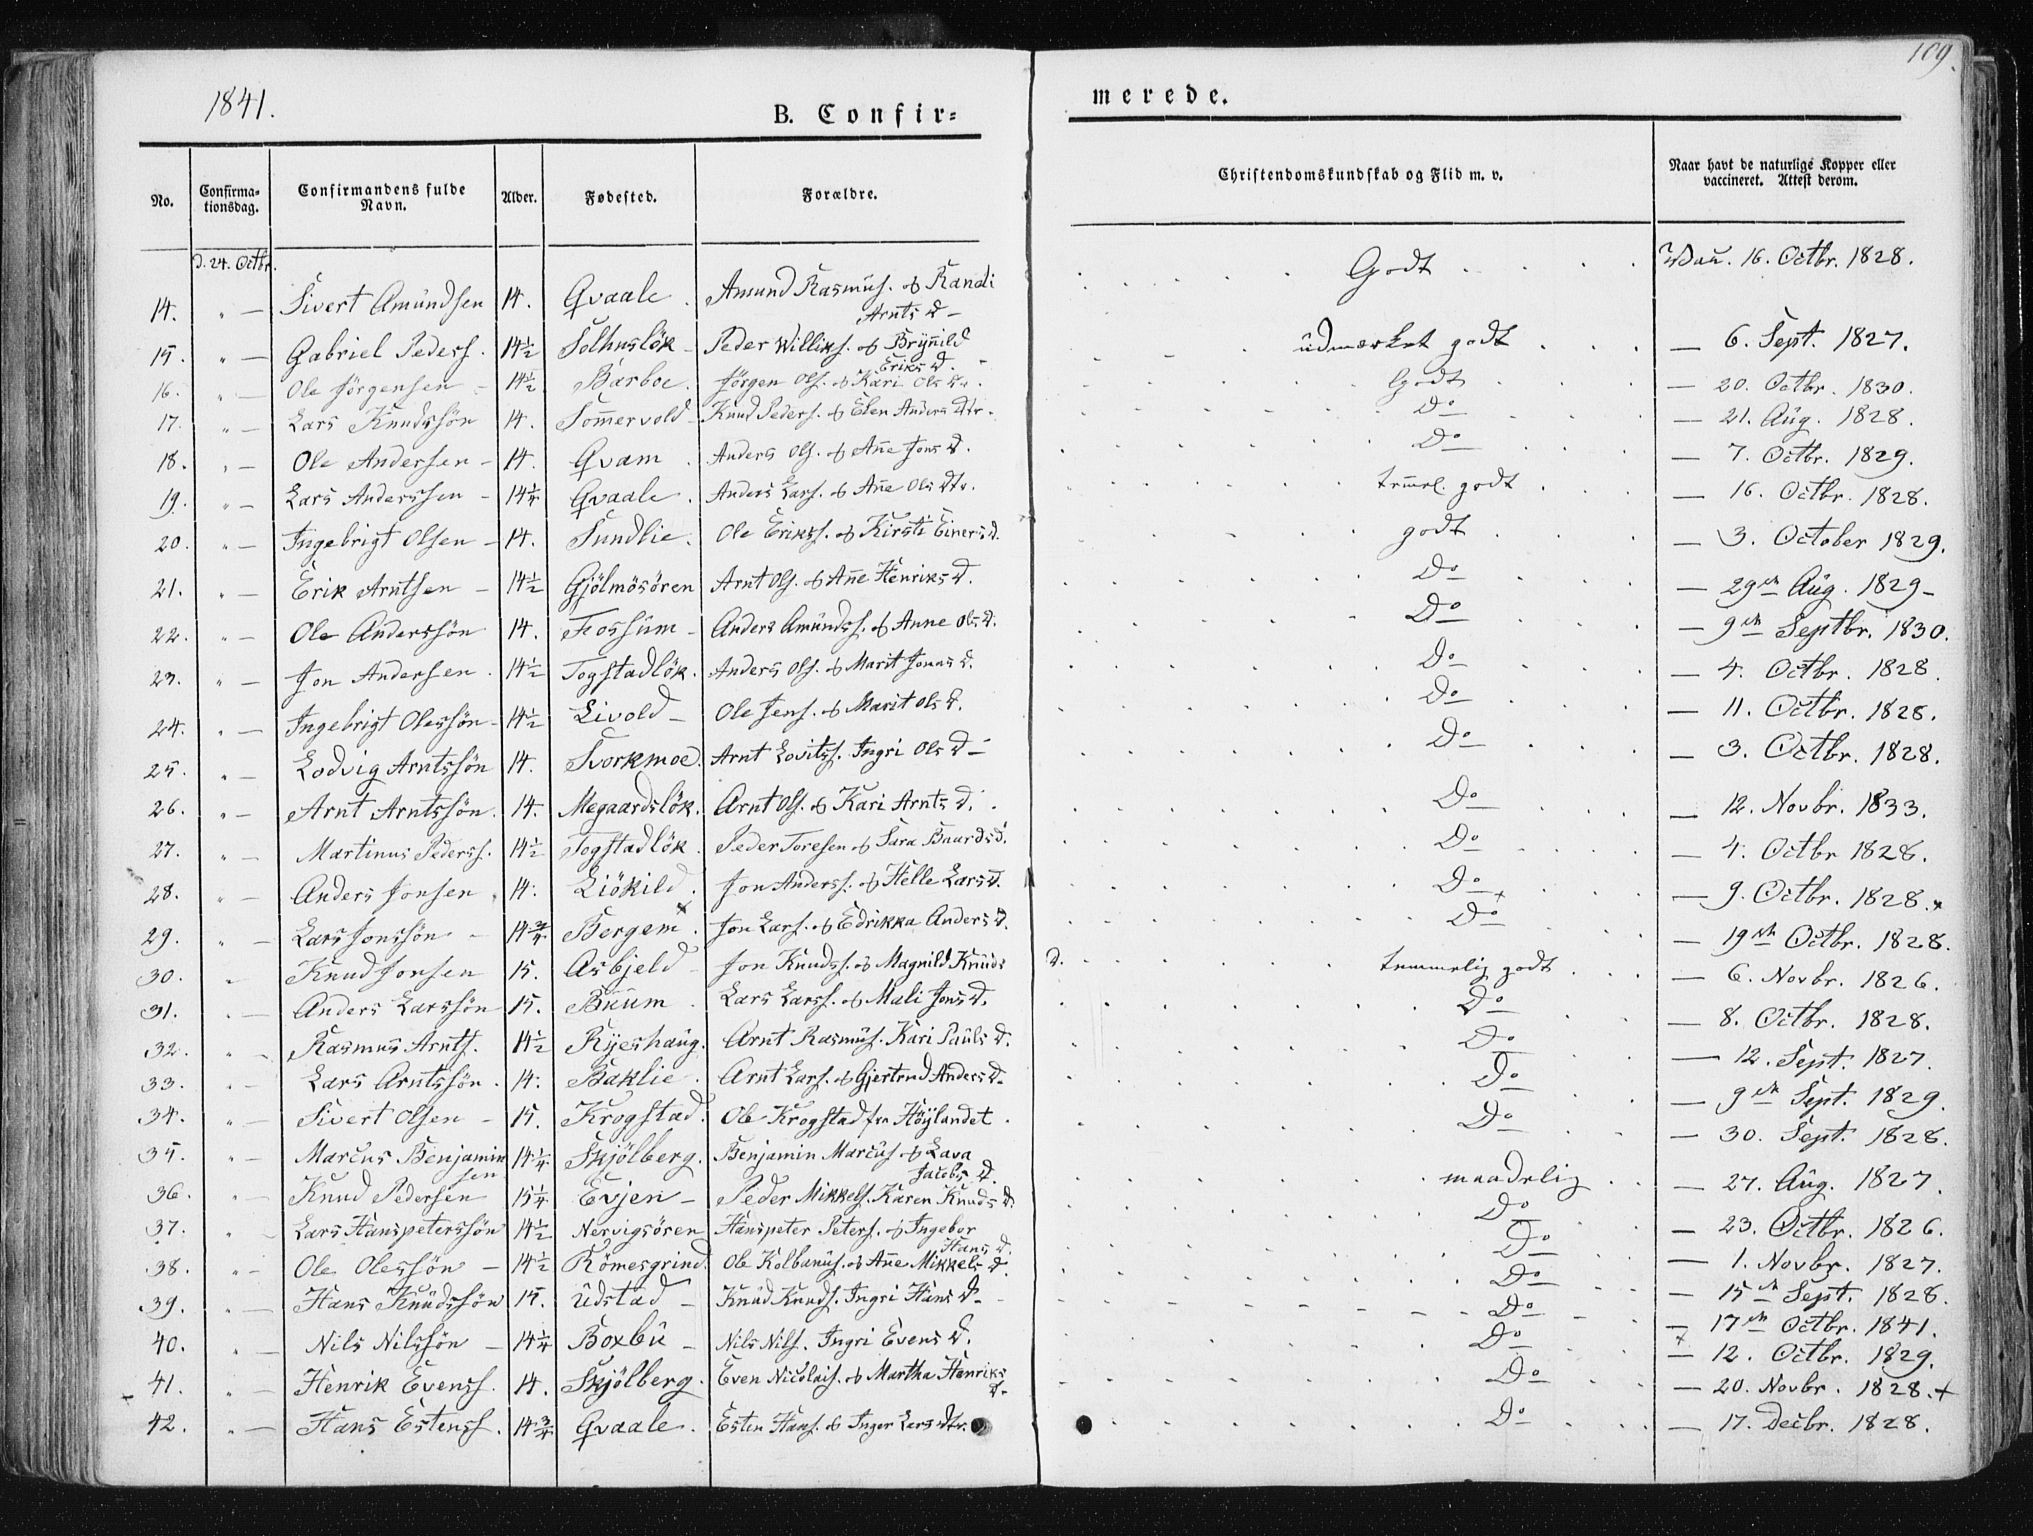 109.
1841.
B. Confir=
merede.
No.
Confirma-
tionsdag.
Confirmandens fulde
Navn.
Alder.
Fødested.
Forældre.
Christendomskundskab og Flid m. v.
Naar havt de naturlige Kopper eller
vaccineret. Attest derom.
d. 24. Octbr.
14. " — Sivert Amundsen 14. Qvaale. Amund Rasmus. & Randi Godt Vau. 16. Octbr. 1828.
Arnts D —
15. " — Gabriel Peders. 14½ Solhuslök — Peder Williks. & Brÿnild udmærket godt — 6. Sept. 1827.
Eriks D.
16. " — Ole Jörgensen — 14½ Bärboe. Jörgen Ols. & Kari Ols Dr. Godt — 20. Octbr. 1830.
17. " — Lars Knudssön 14. Som̄ervold — Knud Peders. & Elen Anders Dtr. Do — 21. Aug. 1828.
18. " — Ole Andersen — 14. Qvam. Anders Ols. & An̄e Jons D. Do — 7. Octbr. 1829.
19. " — Lars Anderssen — 14¼ Qvaale. Anders Lars. & An̄e Ols Dtr. tem̄el. godt — 16. Octbr. 1828.
20. " — Ingebrigt Olsen — 14. Sundlie. Ole Erikss. & Kirsti Einers D. godt — 3. October 1829.
21. " — Erik Arntsen — 14½ Gjölmösören Arnt Ols. & An̄e Henriks D. Do — 29de Aug. 1829 —
22. " — Ole Anderssön 14. Fossum — Anders Amunds. & Anne Ols. D. Do — 9de Septbr. 1830.
23. " — Jon Andersen. 14½ Togstadlök. Anders Ols. & Marit Jonas D. Do — 4. Octbr. 1828.
24. " — Ingebrigt Olessön — 14½ Livold — Ole Jens. & Marit Ols D. Do — 11. Octbr. 1828.
25. " — Lodvig Arntssön 14. Svorkmoe. Arnt Lovitss. Ingri Ols D — Do — 3. Octbr. 1828.
26. " — Arnt Arntssön. 14. Megaardslök. Arnt Ols. & Kari Arnts D. Do — 12. Novbr. 1833.
27. " — Martinus Peders. 14½ Togstadlök. Peder Toresen & Sara Baards D. Do — 4. Octbr 1828.
28. " — Anders Jonsen. 14. Liökild. Jon Anderss. & Helle Lars D. Do — 9. Octbr. 1828. +
29. " — Lars Jonssön — 14¾. Bergem. Jon Lars. & Edrikka Anders D. Do — 19de Octbr. 1828.
30. " Knud Jonsen 15. Asbjeld — Jon Knudss. & Magnild Knuds D. temmelig godt — 6. Novbr. 1826.
31. " — Anders Larssön 15. Buum. Lars Larss. & Mali Jons D. Do — 8. Octbr. 1828.
32. " — Rasmus Arnts. 14½ Ryeshaug. Arnt Rasmus. Kari Pauls D. Do — 12. Sept. 1827.
33. " — Lars Arntssön. 14. Baklie. Arnt Lars. & Gjertrud Anders D. Do — 9de Sept. 1829.
34. " — Sivert Olsen — 15. Krogstad. Ole Krogstad fra Höylandet. Do — 30. Sept. 1828.
35. " — Marcus Benjamin 14¼ Skjölberg. Benjamin Marcus & Lava maadelig — 27. Aug. 1827.
sen
Jacobs D.
36. " — Knud Pedersen 15¼ Evjen — Peder Mikkels. Karen Knuds D. Do — 23. Octbr. 1826.
37. " — Lars Hanspeterssön 14½ Nervigsören Hanspeter Peters. & Ingebor Do — 1. Novbr. 1827.
Hans D.
38. " — Ole Olessön — 14½ Römesgrind. Ole Kolbanus. & An̄e Mikkels D. Do — 15de Sept. 1828.
39. " — Hans Knudssön 15. Udstad — Knud Knuds. Ingri Hans D — Do — 17de Octbr. 1841.
40. " — Nils Nilssön — 14¼ Boxbu — Nils Nils. Ingri Evens D. Do — 12. Octbr. 1829.
41. " — Henrik Evenss. 14. Skjölberg. Even Nicolais. & Martha Henriks Do — 20. Novbr. 1828. +
D —
42. " — Hans Estenss. 14¾ Qvaale. Esten Hans. & Inger Lars Dtr. Do — 17. Decbr. 1828.